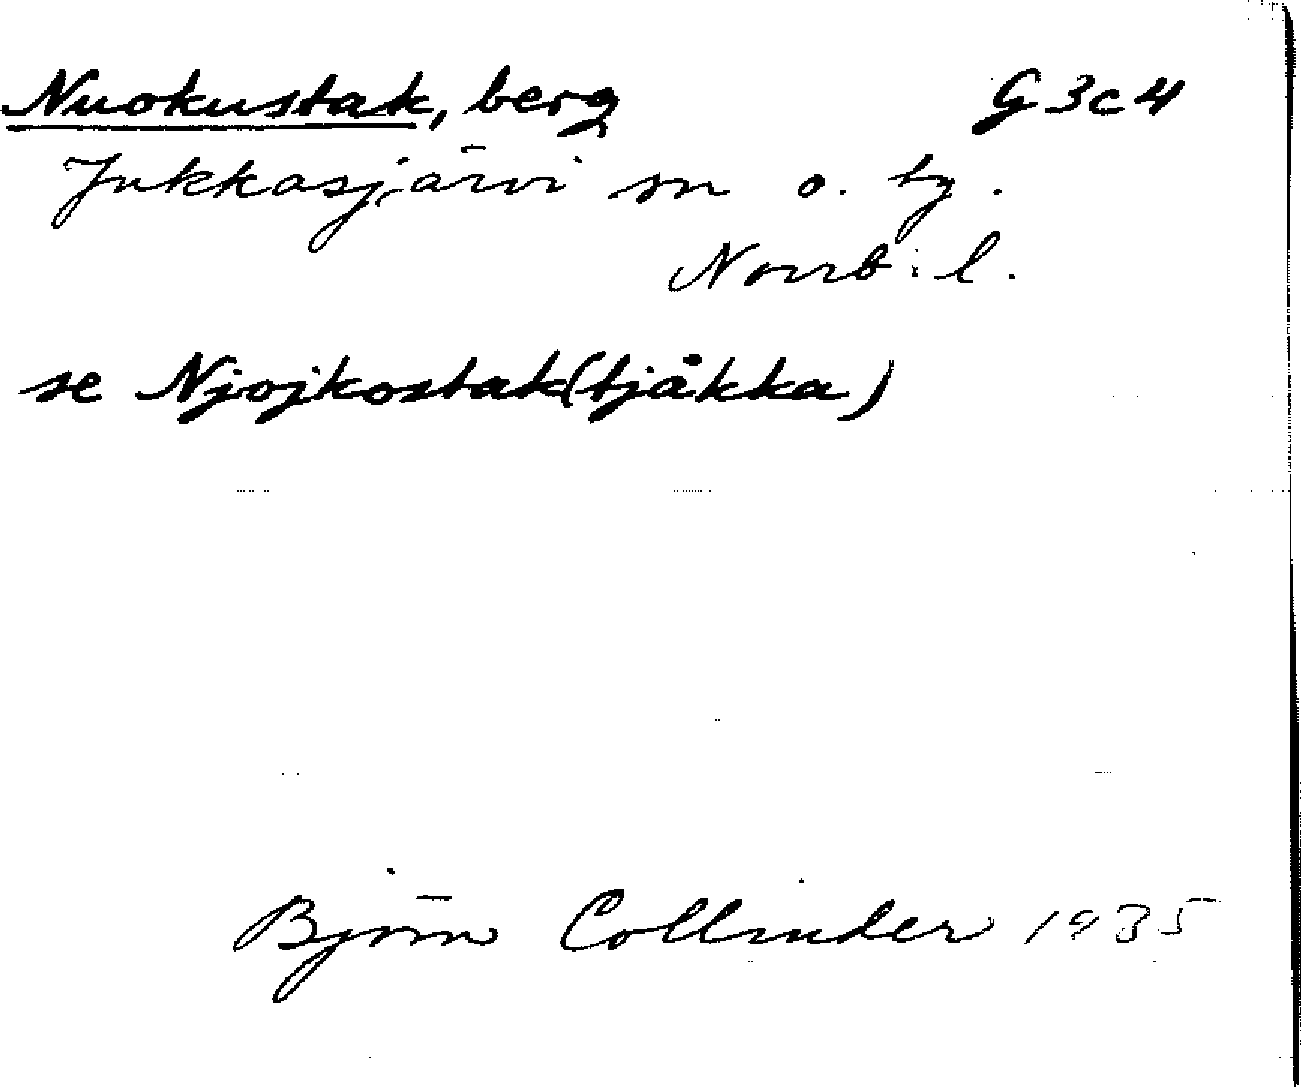 Nuokustak, berg G 3 c 4
Jukkasjärvi sn o. tg.
Norrb. l.
se Njojkostak(tjåkka)
Björn Collinder 1935